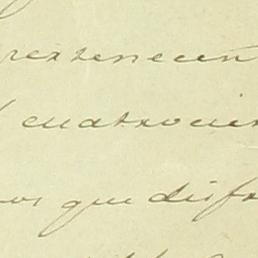 pertenecen
cuatrocien
os que disf